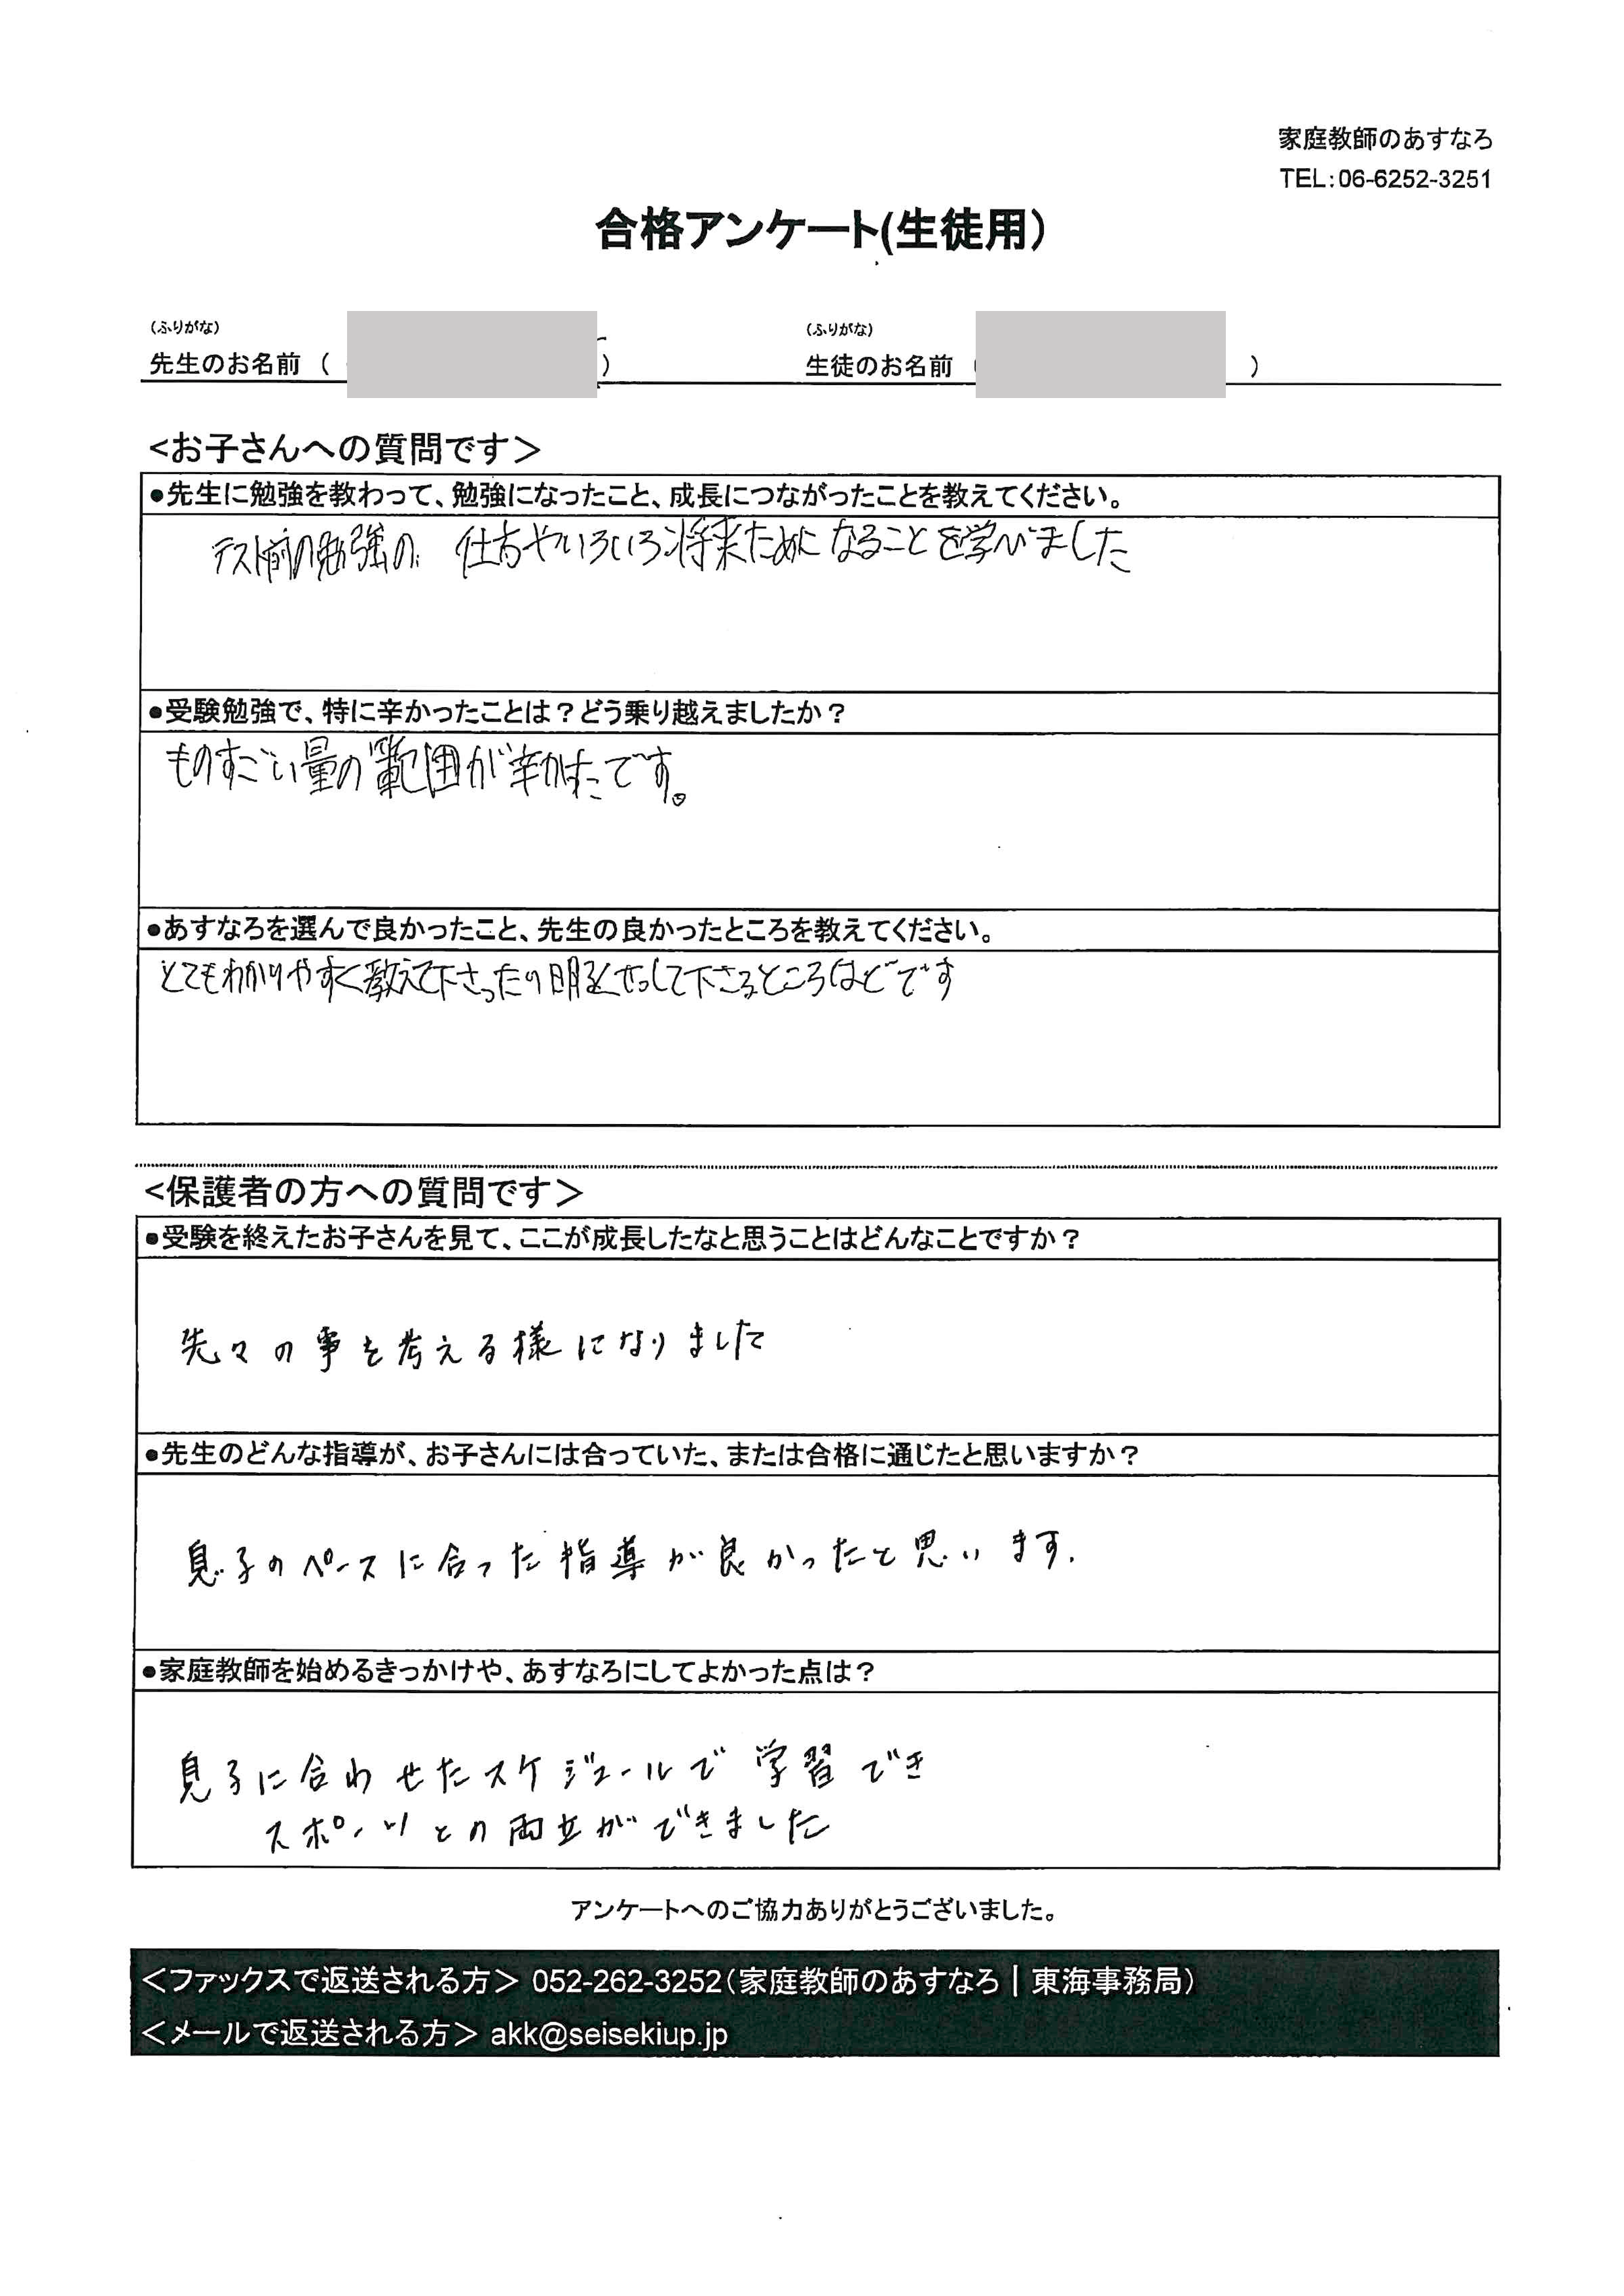 家庭教師のあすなろ
TEL:06-6252-3251
合格アンケート(生徒用)
(ふりがな) (ふりがな)
先生のお名前 ( ) 生徒のお名前 ( )
<お子さんへの質問です>
●先生に勉強を教わって、勉強になったこと、成長につながったことを教えてください。
テスト前の勉強の 仕方やいろいろ将来ためになることを学びました
●受験勉強で、特に辛かったことは?どう乗り越えましたか?
ものすごい量の範囲が辛かったです。
●あすなろを選んで良かったこと、先生の良かったところを教えてください。
とてもわかりやすく教えて下さったり明るくせっして下さるところなどです
<保護者の方への質問です>
●受験を終えたお子さんを見て、ここが成長したなと思うことはどんなことですか?
先々の事を考える様になりました
●先生のどんな指導が、お子さんには合っていた、または合格に通じたと思いますか?
息子のペースに合った指導が良かったと思います.
●家庭教師を始めるきっかけや、あすなろにしてよかった点は?
息子に合わせたスケジュールで学習でき
スポーツとの両立ができました
アンケートへのご協力ありがとうございました。
<ファックスで返送される方> 052-262-3252(家庭教師のあすなろ|東海事務局)
<メールで返送される方> akk@seisekiup.jp